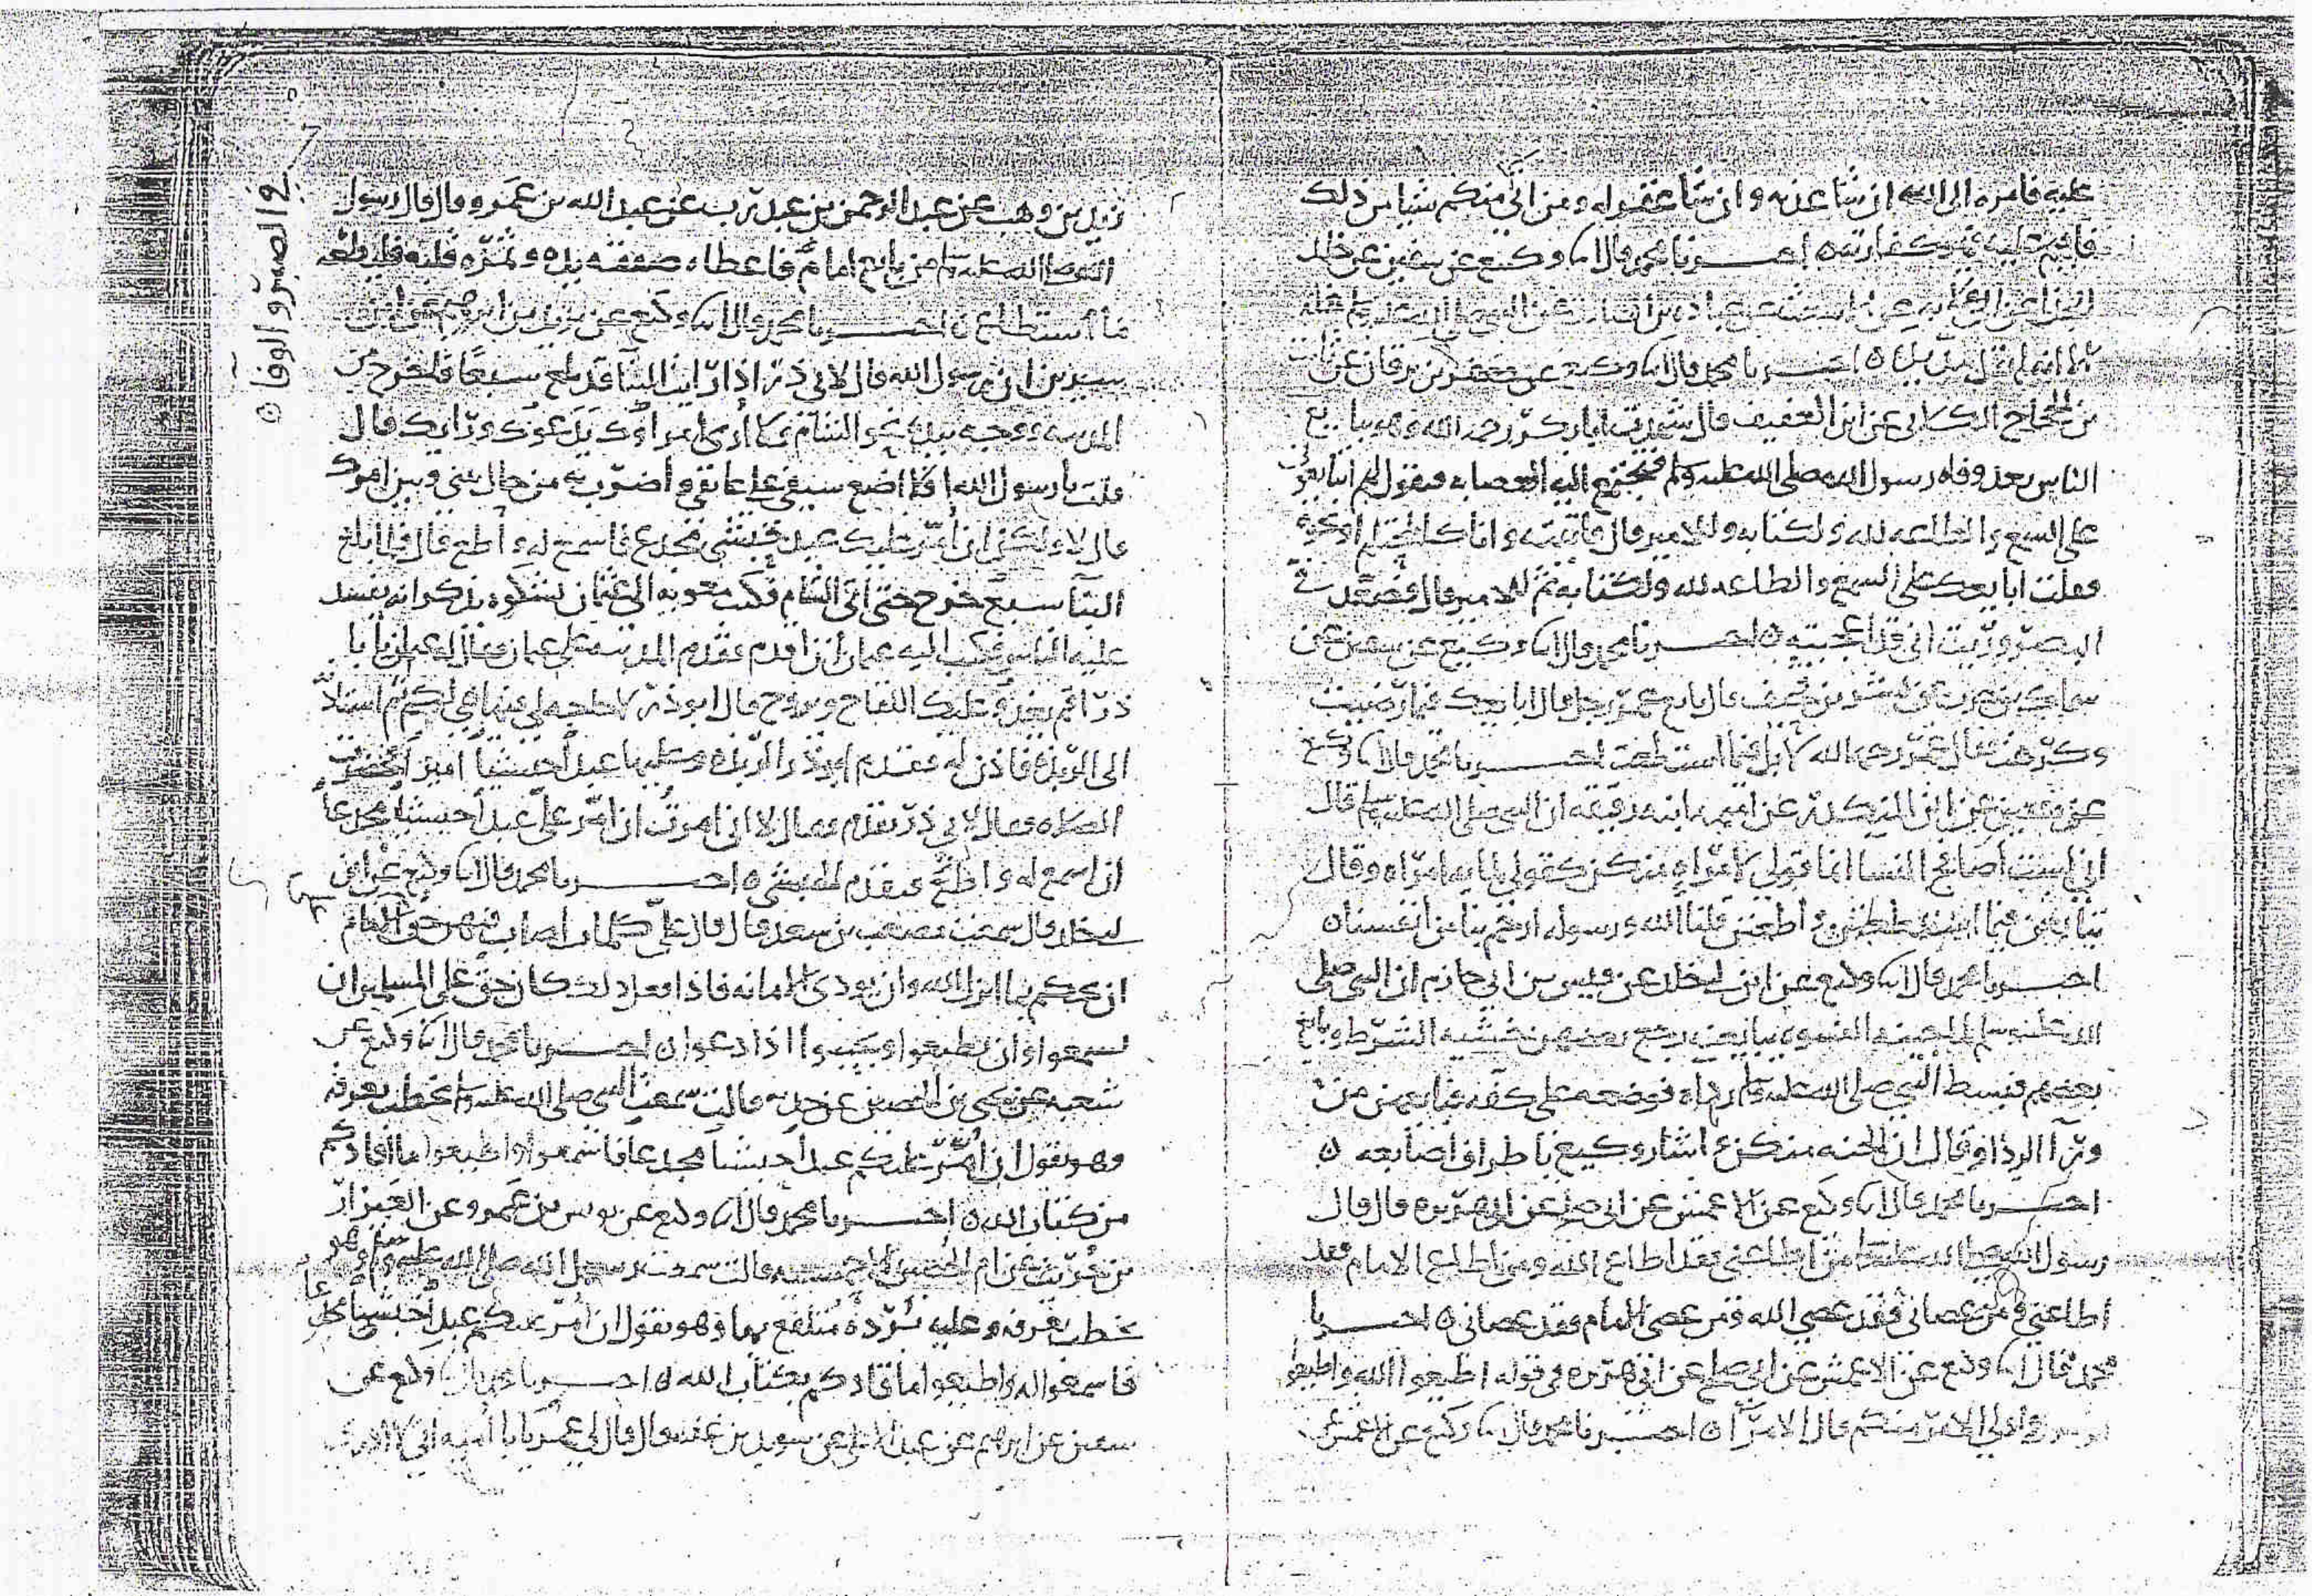 عليه فامره الى الله ان شا عذبه وان شا غفر له ومن اتى منكم شيا من ذلك
فاقيم عليه فهو كفارته ٥ اخبرنا محمد قال انا وكيع عن سفين عن خلد
الحذا عن ابي قلابه عن ابي عن عباده بن الصامت عن النبي صلى الله عليه وسلم مثله
الا انه لم يقل ٥ اخبرنا محمد قال انا وكيع عن جعفر بن برقان عن ثابت
بن الحجاج الكلابي عن ابن العفيف قال شهدت ابا بكر رحمه الله وهو يبايع
الناس بعد وفاه رسول الله صلى الله عليه وسلم فتجتمع اليه العصابه فيقول لهم اتبايعوني
على السمع والطاعه لله ولكتابه وللامير قال فاتيته وانا كالمحتلم او نحوه
فقلت ابايعك على السمع والطاعه لله ولكتابه ثم للامير قال فصعد في
البصر ورايت اني قد اعجبته ٥ اخبرنا محمد قال انا وكيع عن سفين عن
سماك بن حرب عن بشر بن قحيف قال بايع عمر رجل قال ابايعك فيما رضيت
وكرهت فقال عمر رحمه الله لا بل فيما استطعت اخبرنا محمد قال انا وكيع
عن سفين عن ابن المنكدر عن اميمه ابنه رقيقه ان النبي صلى الله عليه وسلم قال
اني لست اصافح النسا انما قولي لامراه منكن كقولي لمايه امراه وقال
تبايعن فيما استطعتن واطقتن قلنا الله ورسوله ارحم بنا من انفسنا ٥
اخبرنا محمد قال انا وكيع عن ابن ابي خلد عن قيس بن ابي حازم ان النبي صلى
الله عليه وسلم النسوه يبايعنه رجع بعضهن خشيه الشرط وبايع
بعضهم فبسط النبي صلى الله عليه وسلم رداه فوضعه على كفه فبايعهن من
ورآ الردا وقال ان الجنه منكن اشار وكيع باطراف اصابعه ٥
اخبرنا محمد قال انا وكيع عن الاعمش عن ابي صلح عن ابي هريره قال قال
رسول الله صلى الله عليه وسلم من اطاعني فقد اطاع الله ومن اطاع الامام فقد
اطاعني ومن عصاني فقد عصى الله ومن عصى الامام فقد عصاني ٥ اخبرنا
محمد قال انا وكيع عن الاعمش عن ابي صلح عن ابي هريره في قوله اطيعوا الله واطيعوا
الرسول واولي الامر منكم قال الامرآ ٥ اخبرنا محمد قال انا وكيع عن الاعمش عن
زيد بن وهب عن عبد الرحمن بن عبد رب عن عبد الله بن عمرو قال قال رسول
الله صلى الله عليه وسلم من بايع اماماً فاعطاه صفقه يده وثمره قلبه فليطعه
ما استطاع ٥ اخبرنا محمد قال انا وكيع عن
سيرين ان رسول الله قال لابي ذر اذا رايت البنآ قد بلغ سلعاً فاخرج من
المدينه ووجه بيده نحو الشام وما ارى امراؤك يدعوك ورايك قال
قلت يا رسول الله افلا اضع سيفي على عاتقي واضرب به من حال بيني وبين امرك
قال لا ولكن ان امر عليك عبد حبشي مجدع فاسمع له واطع قال فلما بلغ
البنآ سلع خرج حتى اتى الشام فكتب معويه الى عثمان يشكوه يذكر انه يفسد
عليه الناس فكتب اليه عثمان ان اقدم فقدم المدينه على عثمان فقال له عثمان يا ابا
ذر اقم تغدو عليك اللقاح وتروح قال ابو ذر لا حاجه لي فيها هي لكم ثم استاذن
الى الربذه فاذن له فقدم ابو ذر الربذه وعليها عبداً حبشياً امير فحضرت
الصلاه فقال لابي ذر تقدم فقال لا اني امرت ان امر على عبداً حبشياً مجدعاً
ان اسمع له واطع فتقدم الحبشي ٥ اخبرنا محمد قال انا وكيع عن ابن
ابي خلد قال سمعت مصعب بن سعد قال قال علي كلمات اصاب فيهن حق على الامام
ان يحكم بما انزل الله وان يودى الامانه فاذا فعل ذلك كان حق على المسلمين ان
يسمعوا وان يطيعوا ويجيبوا اذا دعوا ٥ اخبرنا محمد قال انا وكيع عن
شعبه عن يحيى بن الحصين عن جدته قالت سمعت النبي صلى الله عليه وسلم يخطب بعرفه
وهو يقول ان امر عليكم عبداً حبشياً مجدعاً فاسمعوا واطيعوا ما اقادكم
من كتاب الله ٥ اخبرنا محمد قال انا وكيع عن يونس بن عمرو عن العيزار
بن حريث عن ام الحصين الاحمسيه قالت سمعت رسول الله صلى الله عليه وسلم وهو
يخطب بعرفه وعليه برده متلفع بها وهو يقول ان امر عليكم عبداً حبشياً مجدعا
فاسمعوا له واطيعوا ما قادكم بكتاب الله ٥ اخبرنا محمد قال انا وكيع عن
سفين عن ابرهيم عن عبد الاعلى عن سويد بن غفله قال قال لي عمر يا با اميه اني لا ادري
في الصبر والوفا ٥